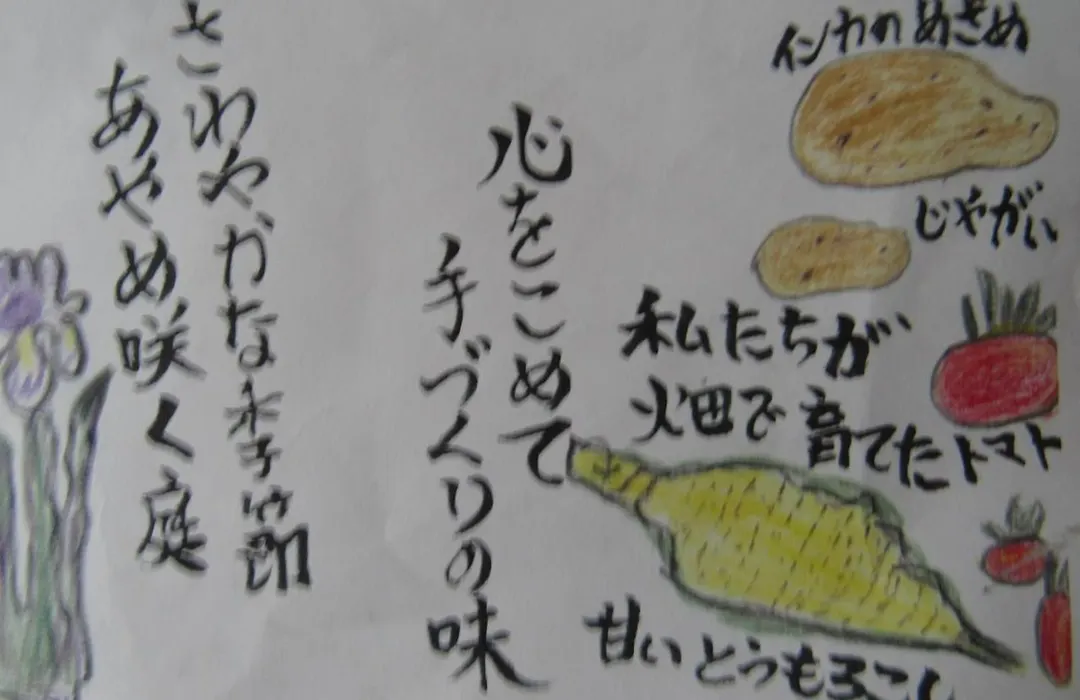 インカのめざめ
じゃがい
私たちが
畑で育てたトマト
甘いとうもろこし
心をこめて
手づくりの味
さわやかな季節
あやめ咲く庭